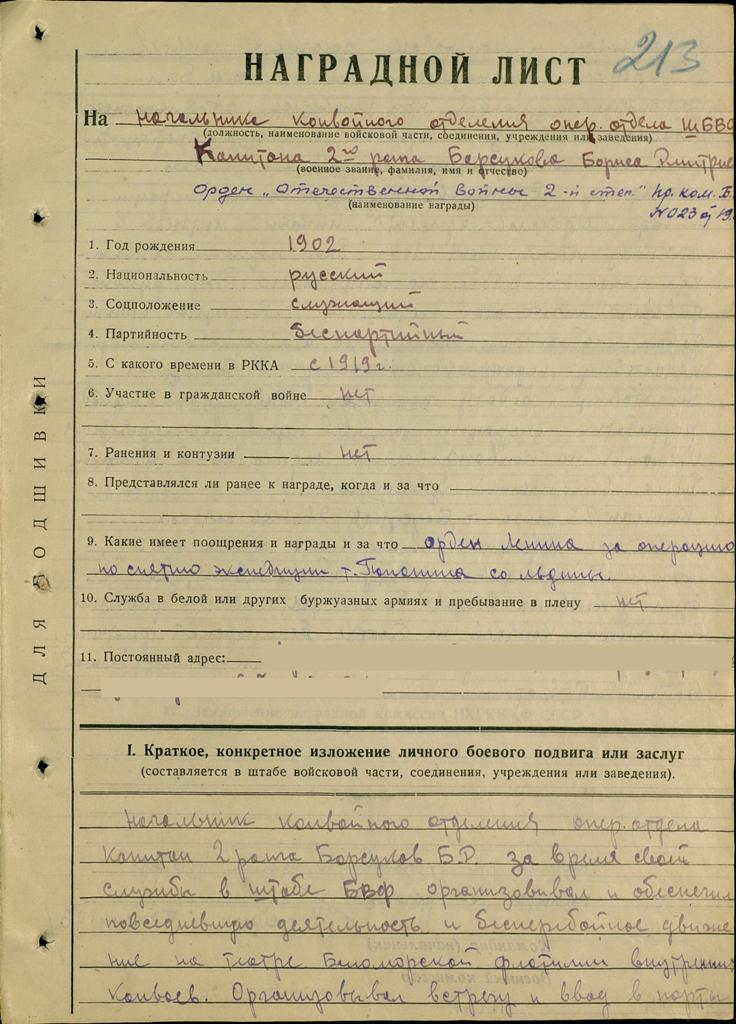 213
НАГРАДНОЙ ЛИСТ
На начальника конвойного отделения опер. отдела ШБВФ
(должность, наименование войсковой части, соединения, учреждения или заведения)
Капитана 2го ранга Борсукова Бориса Дмитрие
(военное звание, фамилия, имя и отчество)
Орден „Отечественной Войны 2-й степ." Пр. ком. Б.
(наименование награды)
N 023 19
1. Год рождения 1902
2. Национальность русский
3. Соцположение служащий
4. Партийность беспартийный
5. С какого времени в РККА с 1919г.
6. Участие в гражданской войне нет
7. Ранения и контузии нет
8. Представлялся ли ранее к награде, когда и за что
9. Какие имеет поощрения и награды и за что орден Ленина за операцию
по снятию экспедиции т. Папанина со льдины.
10. Служба в белой или других буржуазных армиях и пребывание в плену нет
11. Постоянный адрес:
ДЛЯ ПОДШИВКИ
I. Краткое, конкретное изложение личного боевого подвига или заслуг
(составляется в штабе войсковой части, соединения, учреждения или заведения).
Начальник конвойного отделения опер. отдела
Капитан 2 ранга Борсуков Б.Д. за время своей
службы в штабе БВФ организовывал и обеспечил
повседневную деятельность и бесперебойное движе
ние на театре Беломорской флотилии внутренних
конвоев. Организовывал встречу и ввод в порты